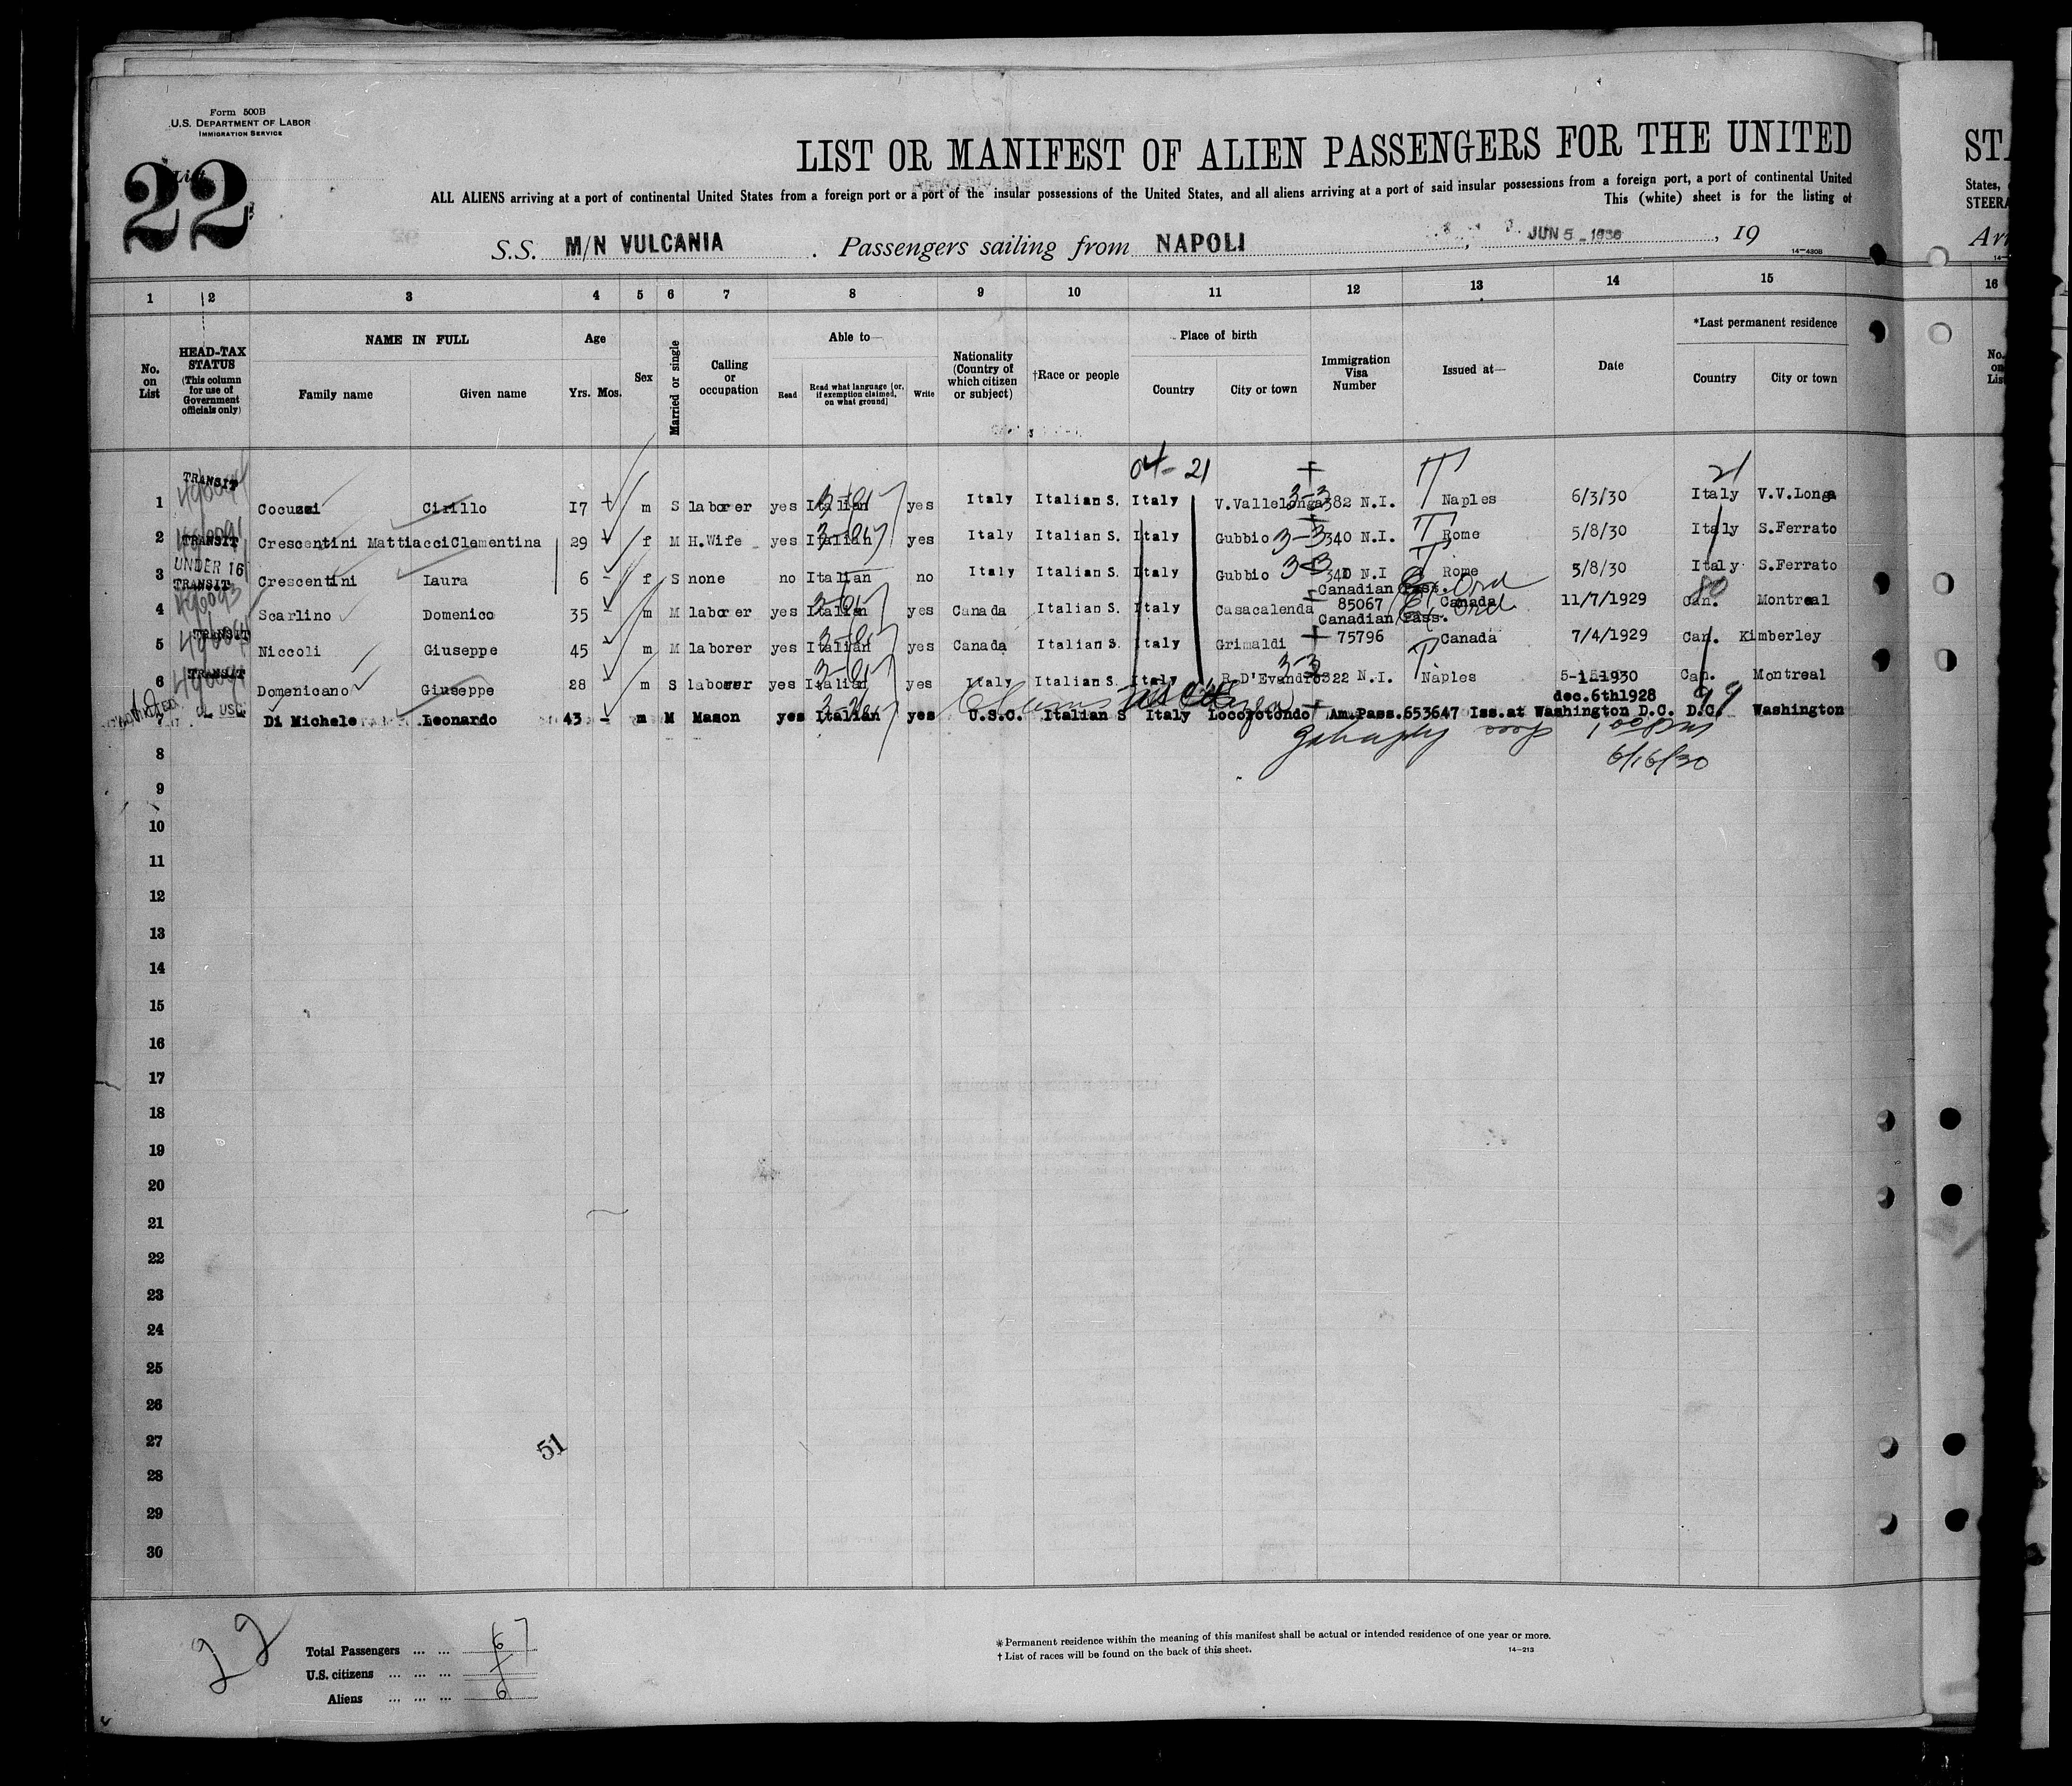 Form 500B
U.S. DEPARTMENT OF LABOR
IMMIGRATION SERVICE
List
22
LIST OR MANIFEST OF ALIEN PASSENGERS FOR THE UNITED
ALL ALIENS arriving at a port of continental United States from a foreign port or a port of the insular possessions of the United States, and all aliens arriving at a port of said insular possessions from a foreign port, a port of continental United
This (white) sheet is for the listing of
S.S. M/N VULCANIA . Passengers sailing from NAPOLI , JUN 5 - 1930 , 19
14-430B
STA
States,
STEERA
Arr
14-
1 2 3 4 5 6 7 8 9 10 11 12 13 14 15 16
No. on List
HEAD-TAX STATUS
(This column for use of Government officials only)
NAME IN FULL
Family name Given name
Age
Yrs. Mos.
Sex
Married or single
Calling or occupation
Able to—
Read Read what language [or, if exemption claimed, on what ground] Write
Nationality (Country of which citizen or subject)
†Race or people
Place of birth
Country City or town
Immigration Visa Number
Issued at—
Date
*Last permanent residence
Country City or town
No. on List
04-21 T 21
1 TRANSIT Cocuzzi Cirillo 17 m S laborer yes Italian yes Italy Italian S. Italy V.Vallelonga 382 N.I. Naples 6/3/30 Italy V.V.Longa
3-3
2 TRANSIT Crescentini Mattiacci Clementina 29 f M H.Wife yes Italian yes Italy Italian S. Italy Gubbio 3-3 340 N.I. Rome 5/8/30 Italy S.Ferrato
UNDER 16
3 TRANSIT Crescentini Laura 6 - f S none no Italian no Italy Italian S. Italy Gubbio 3-3 340 N.I Rome 5/8/30 Italy S.Ferrato
Canadian Pass.
4 Scarlino Domenico 35 - m M laborer yes Italian yes Canada Italian S. Italy Casacalenda 85067 Canada 11/7/1929 Can. Montreal
80
TRANSIT Canadian Pass.
5 Niccoli Giuseppe 45 m M laborer yes Italian yes Canada Italian S. Italy Grimaldi 75796 Canada 7/4/1929 Can. Kimberley
3-3
6 TRANSIT Domenicano Giuseppe 28 m S laborer yes Italian yes Italy Italian S. Italy R.D'Evandro 322 N.I. Naples 5-1-1930 Can. Montreal
dec.6th1928 99
7 USC Di Michele Leonardo 43 - m M Mason yes Italian yes U.S.C. Italian S Italy Locorotondo Am.Pass.653647 Iss.at Washington D.C. D.C. Washington
6/16/30
8
9
10
11
12
13
14
15
16
17
18
19
20
21
22
23
24
25
26
27
28
29
30
51
22
Total Passengers ... ... 7
U.S. citizens ... ... ... 1
Aliens ... ... ... 6
* Permanent residence within the meaning of this manifest shall be actual or intended residence of one year or more.
† List of races will be found on the back of this sheet.
14-213